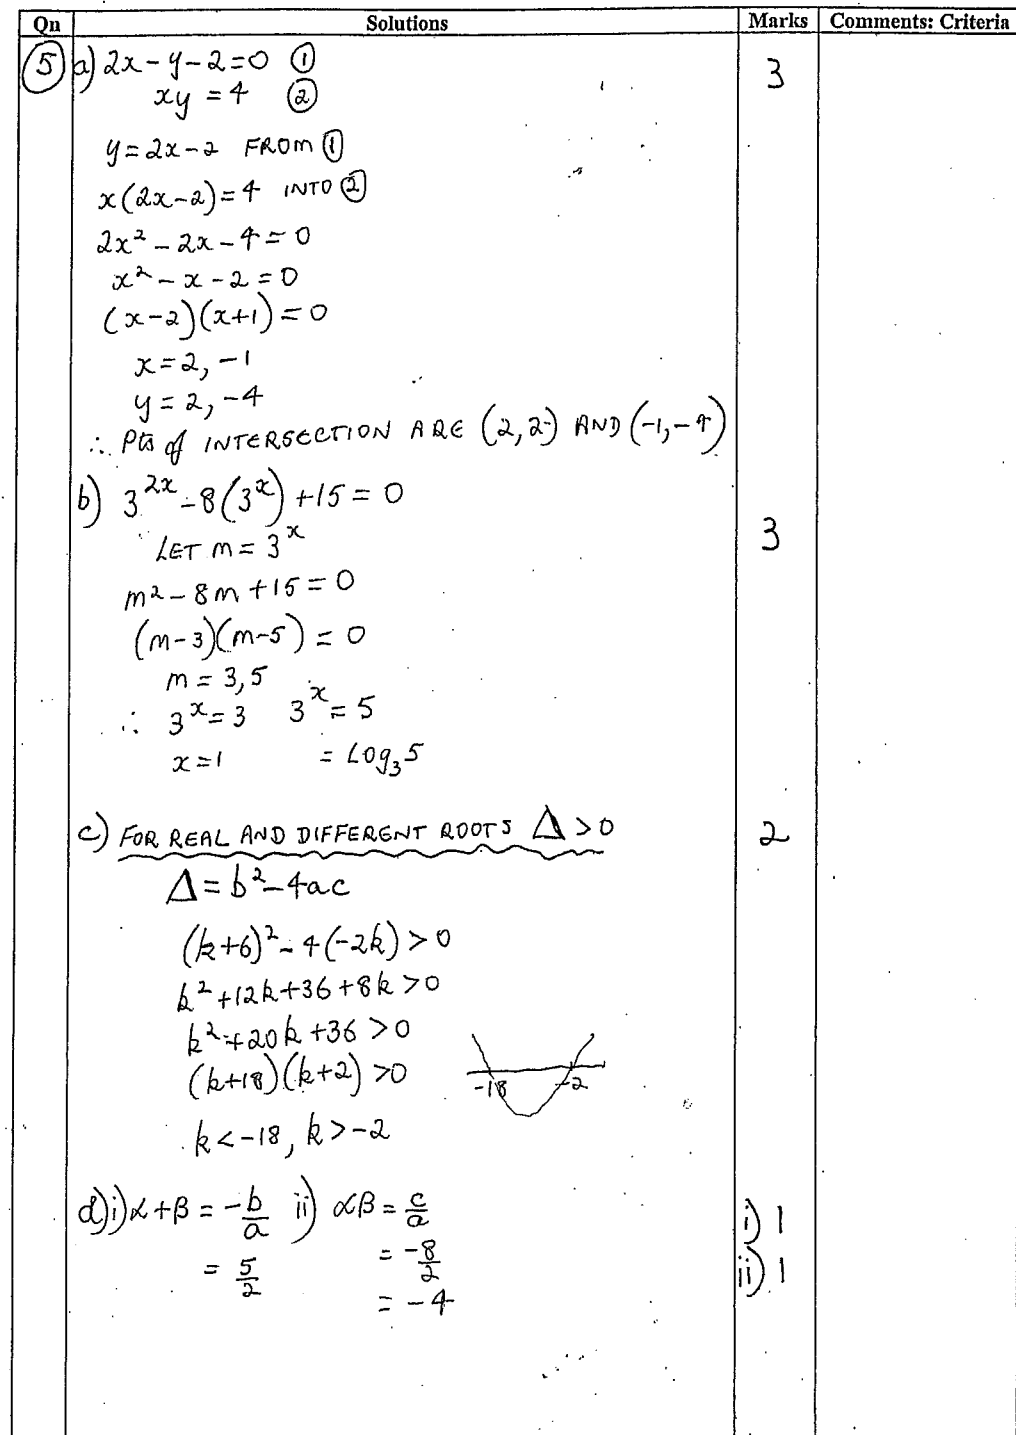 Qn Solutions Marks Comments: Criteria
5 a) 2x - y - 2 = 0 ① 3
xy = 4 ②
y = 2x - 2 FROM ①
x(2x - 2) = 4 INTO ②
2x² - 2x - 4 = 0
x² - x - 2 = 0
(x - 2)(x + 1) = 0
x = 2, -1
y = 2, -4
∴ Pts of INTERSECTION ARE (2, 2) AND (-1, -4)
b) 3^{2x} - 8(3^x) + 15 = 0 3
LET m = 3^x
m² - 8m + 15 = 0
(m - 3)(m - 5) = 0
m = 3, 5
∴ 3^x = 3 3^x = 5
x = 1 = LOg₃5
c) FOR REAL AND DIFFERENT ROOTS Δ > 0 2
Δ = b² - 4ac
(k + 6)² - 4(-2k) > 0
k² + 12k + 36 + 8k > 0
k² + 20k + 36 > 0
(k + 18)(k + 2) > 0
-18 -2
k < -18, k > -2
d) i) α + β = -b/a ii) αβ = c/a i) 1
= 5/2 = -8/2 ii) 1
= -4